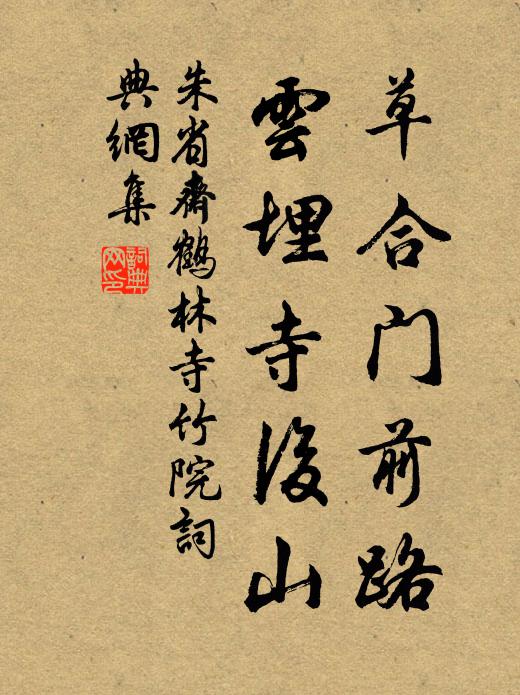 草合門前路
雲埋寺後山
朱省齋鶴林寺竹院詞
典網集
詞典網印